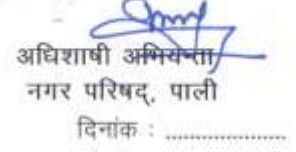 अधिशाषी अभियन्ता
नगर परिषद्, पाली
दिनांक : ......................